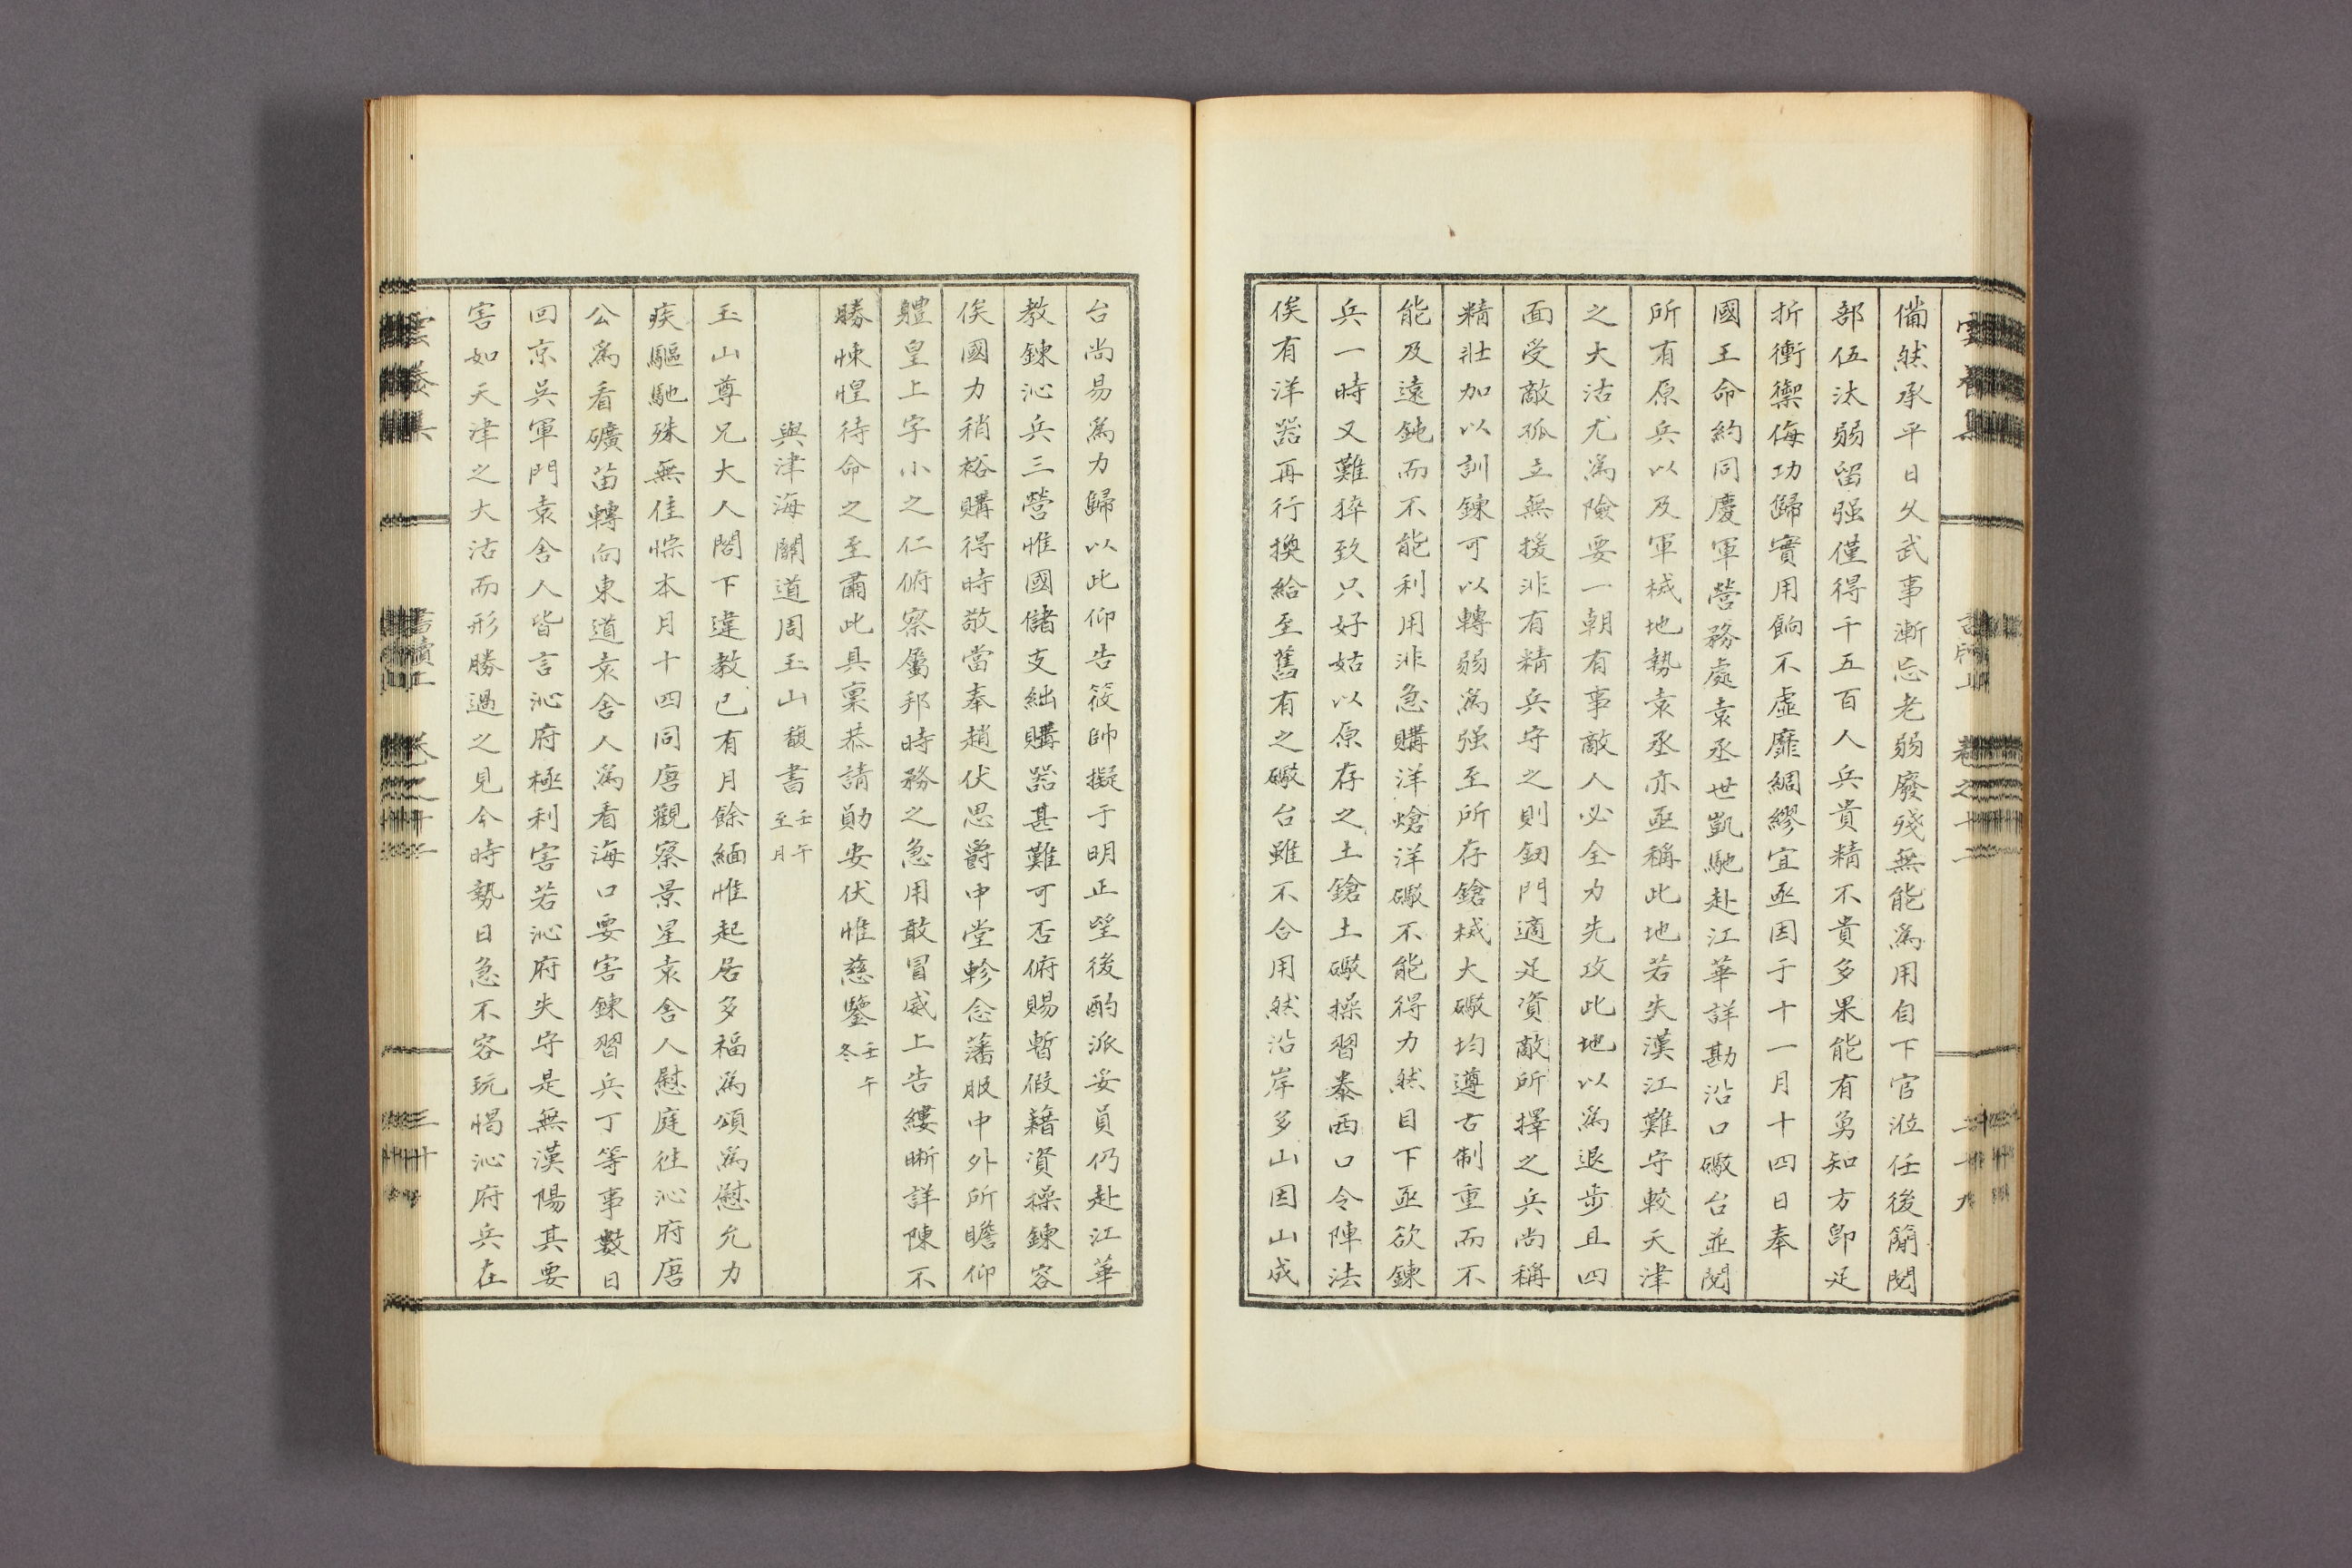 備然承平日久武事漸忘老弱廢殘無能爲用自下官涖任後簡閱
部伍汰弱留强僅得千五百人兵貴精不貴多果能有勇知方卽足
折衝禦侮功歸實用餉不虛靡綢繆宜亟因于十一月十四日奉
國王命約同慶軍營務處袁丞世凱馳赴江華詳勘沿口礮台並閱
所有原兵以及軍械地勢袁丞亦亟稱此地若失漢江難守較天津
之大沽尤爲險要一朝有事敵人必全力先攻此地以爲退步且四
面受敵孤立無援非有精兵守之則釰門適足資敵所擇之兵尚稱
精壯加以訓鍊可以轉弱爲强至所存鎗械大礮均遵古制重而不
能及遠鈍而不能利用非急購洋熗洋礮不能得力然目下亟欲鍊
兵一時又難猝致只好姑以原存之土鎗土礮操習泰西口令陣法
俟有洋器再行換給至舊有之礮台雖不合用然沿岸多山因山成
台尚易爲力歸以此仰告筱帥擬于明正望後酌派妥員仍赴江華
教鍊沁兵三營惟國儲支絀購器甚難可否俯賜暫假藉資操鍊容
俟國力稍裕購得時敬當奉趙伏思爵中堂軫念藩服中外所瞻仰
軆皇上字小之仁俯察屬邦時務之急用敢冒威上告縷晣詳陳不
勝悚惶待命之至肅此具稟恭請勛安伏惟慈鑒壬午冬
與津海關道周玉山馥書壬午至月
玉山尊兄大人閤下違教已有月餘緬惟起居多福爲頌爲慰允力
疾驅馳殊無佳悰本月十四同唐觀察景星袁舍人慰庭徃沁府唐
公爲看礦苗轉向東道袁舍人爲看海口要害鍊習兵丁等事數日
回京吳軍門袁舍人皆言沁府極利害若沁府失守是無漢陽其要
害如天津之大沽而形勝過之見今時勢日急不容玩愒沁府兵在